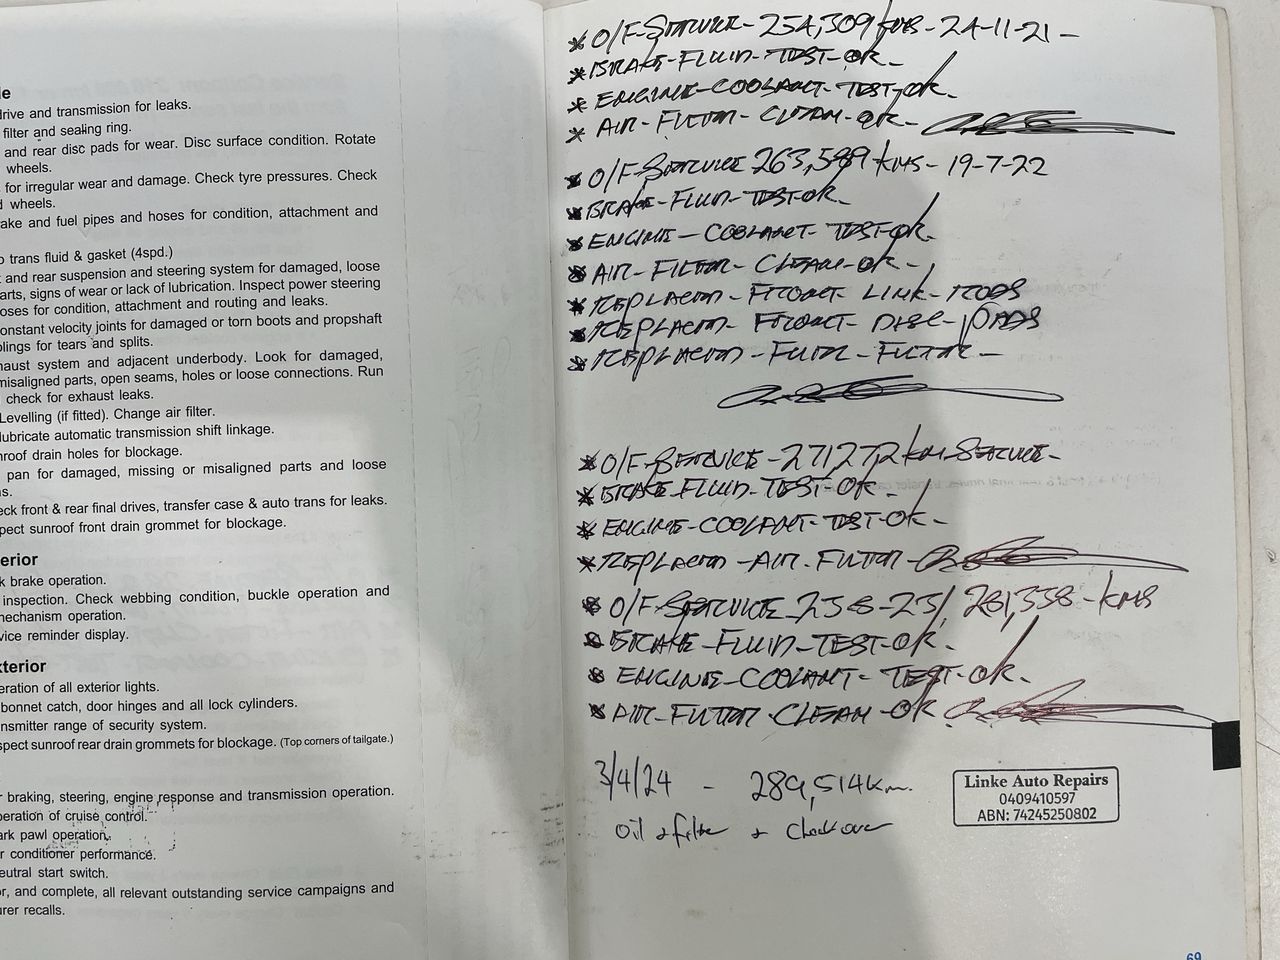 le
drive and transmission for leaks.
filter and sealing ring.
and rear disc pads for wear. Disc surface condition. Rotate
wheels.
for irregular wear and damage. Check tyre pressures. Check
d wheels.
ake and fuel pipes and hoses for condition, attachment and
o trans fluid & gasket (4spd.)
t and rear suspension and steering system for damaged, loose
arts, signs of wear or lack of lubrication. Inspect power steering
oses for condition, attachment and routing and leaks.
onstant velocity joints for damaged or torn boots and propshaft
plings for tears and splits.
haust system and adjacent underbody. Look for damaged,
misaligned parts, open seams, holes or loose connections. Run
check for exhaust leaks.
Levelling (if fitted). Change air filter.
lubricate automatic transmission shift linkage.
nroof drain holes for blockage.
pan for damaged, missing or misaligned parts and loose
s.
eck front & rear final drives, transfer case & auto trans for leaks.
pect sunroof front drain grommet for blockage.
terior
k brake operation.
inspection. Check webbing condition, buckle operation and
mechanism operation.
vice reminder display.
xterior
eration of all exterior lights.
bonnet catch, door hinges and all lock cylinders.
nsmitter range of security system.
spect sunroof rear drain grommets for blockage. (Top corners of tailgate.)
r braking, steering, engine response and transmission operation.
peration of cruise control.
ark pawl operation.
r conditioner performance.
eutral start switch.
or, and complete, all relevant outstanding service campaigns and
urer recalls.
* O/F-SERVICE-254,309 KMS-24-11-21-
* BRAKE-FLUID-TEST-OK-
* ENGINE-COOLANT-TEST-OK-
* AIR-FILTER-CLEAN-OK-
* O/F-SERVICE 263,589 KMS-19-7-22
* BRAKE-FLUID-TEST-OK-
* ENGINE-COOLANT-TEST-OK-
* AIR-FILTER-CLEAN-OK-
* REPLACED-FRONT-LINK-RODS
* REPLACED-FRONT-DISC-PADS
* REPLACED-FUEL-FILTER-
* O/F-SERVICE-271272 KM-SERVICE-
* BRAKE-FLUID-TEST-OK-
* ENGINE-COOLANT-TEST-OK-
* REPLACED-AIR-FILTER-
* O/F-SERVICE-25-8-23/281,338-KMS
* BRAKE-FLUID-TEST-OK-
* ENGINE-COOLANT-TEST-OK-
* AIR-FILTER-CLEAN-OK
3/4/24 - 289,514km.
Oil + filter + Check over
Linke Auto Repairs
0409410597
ABN: 74245250802
69